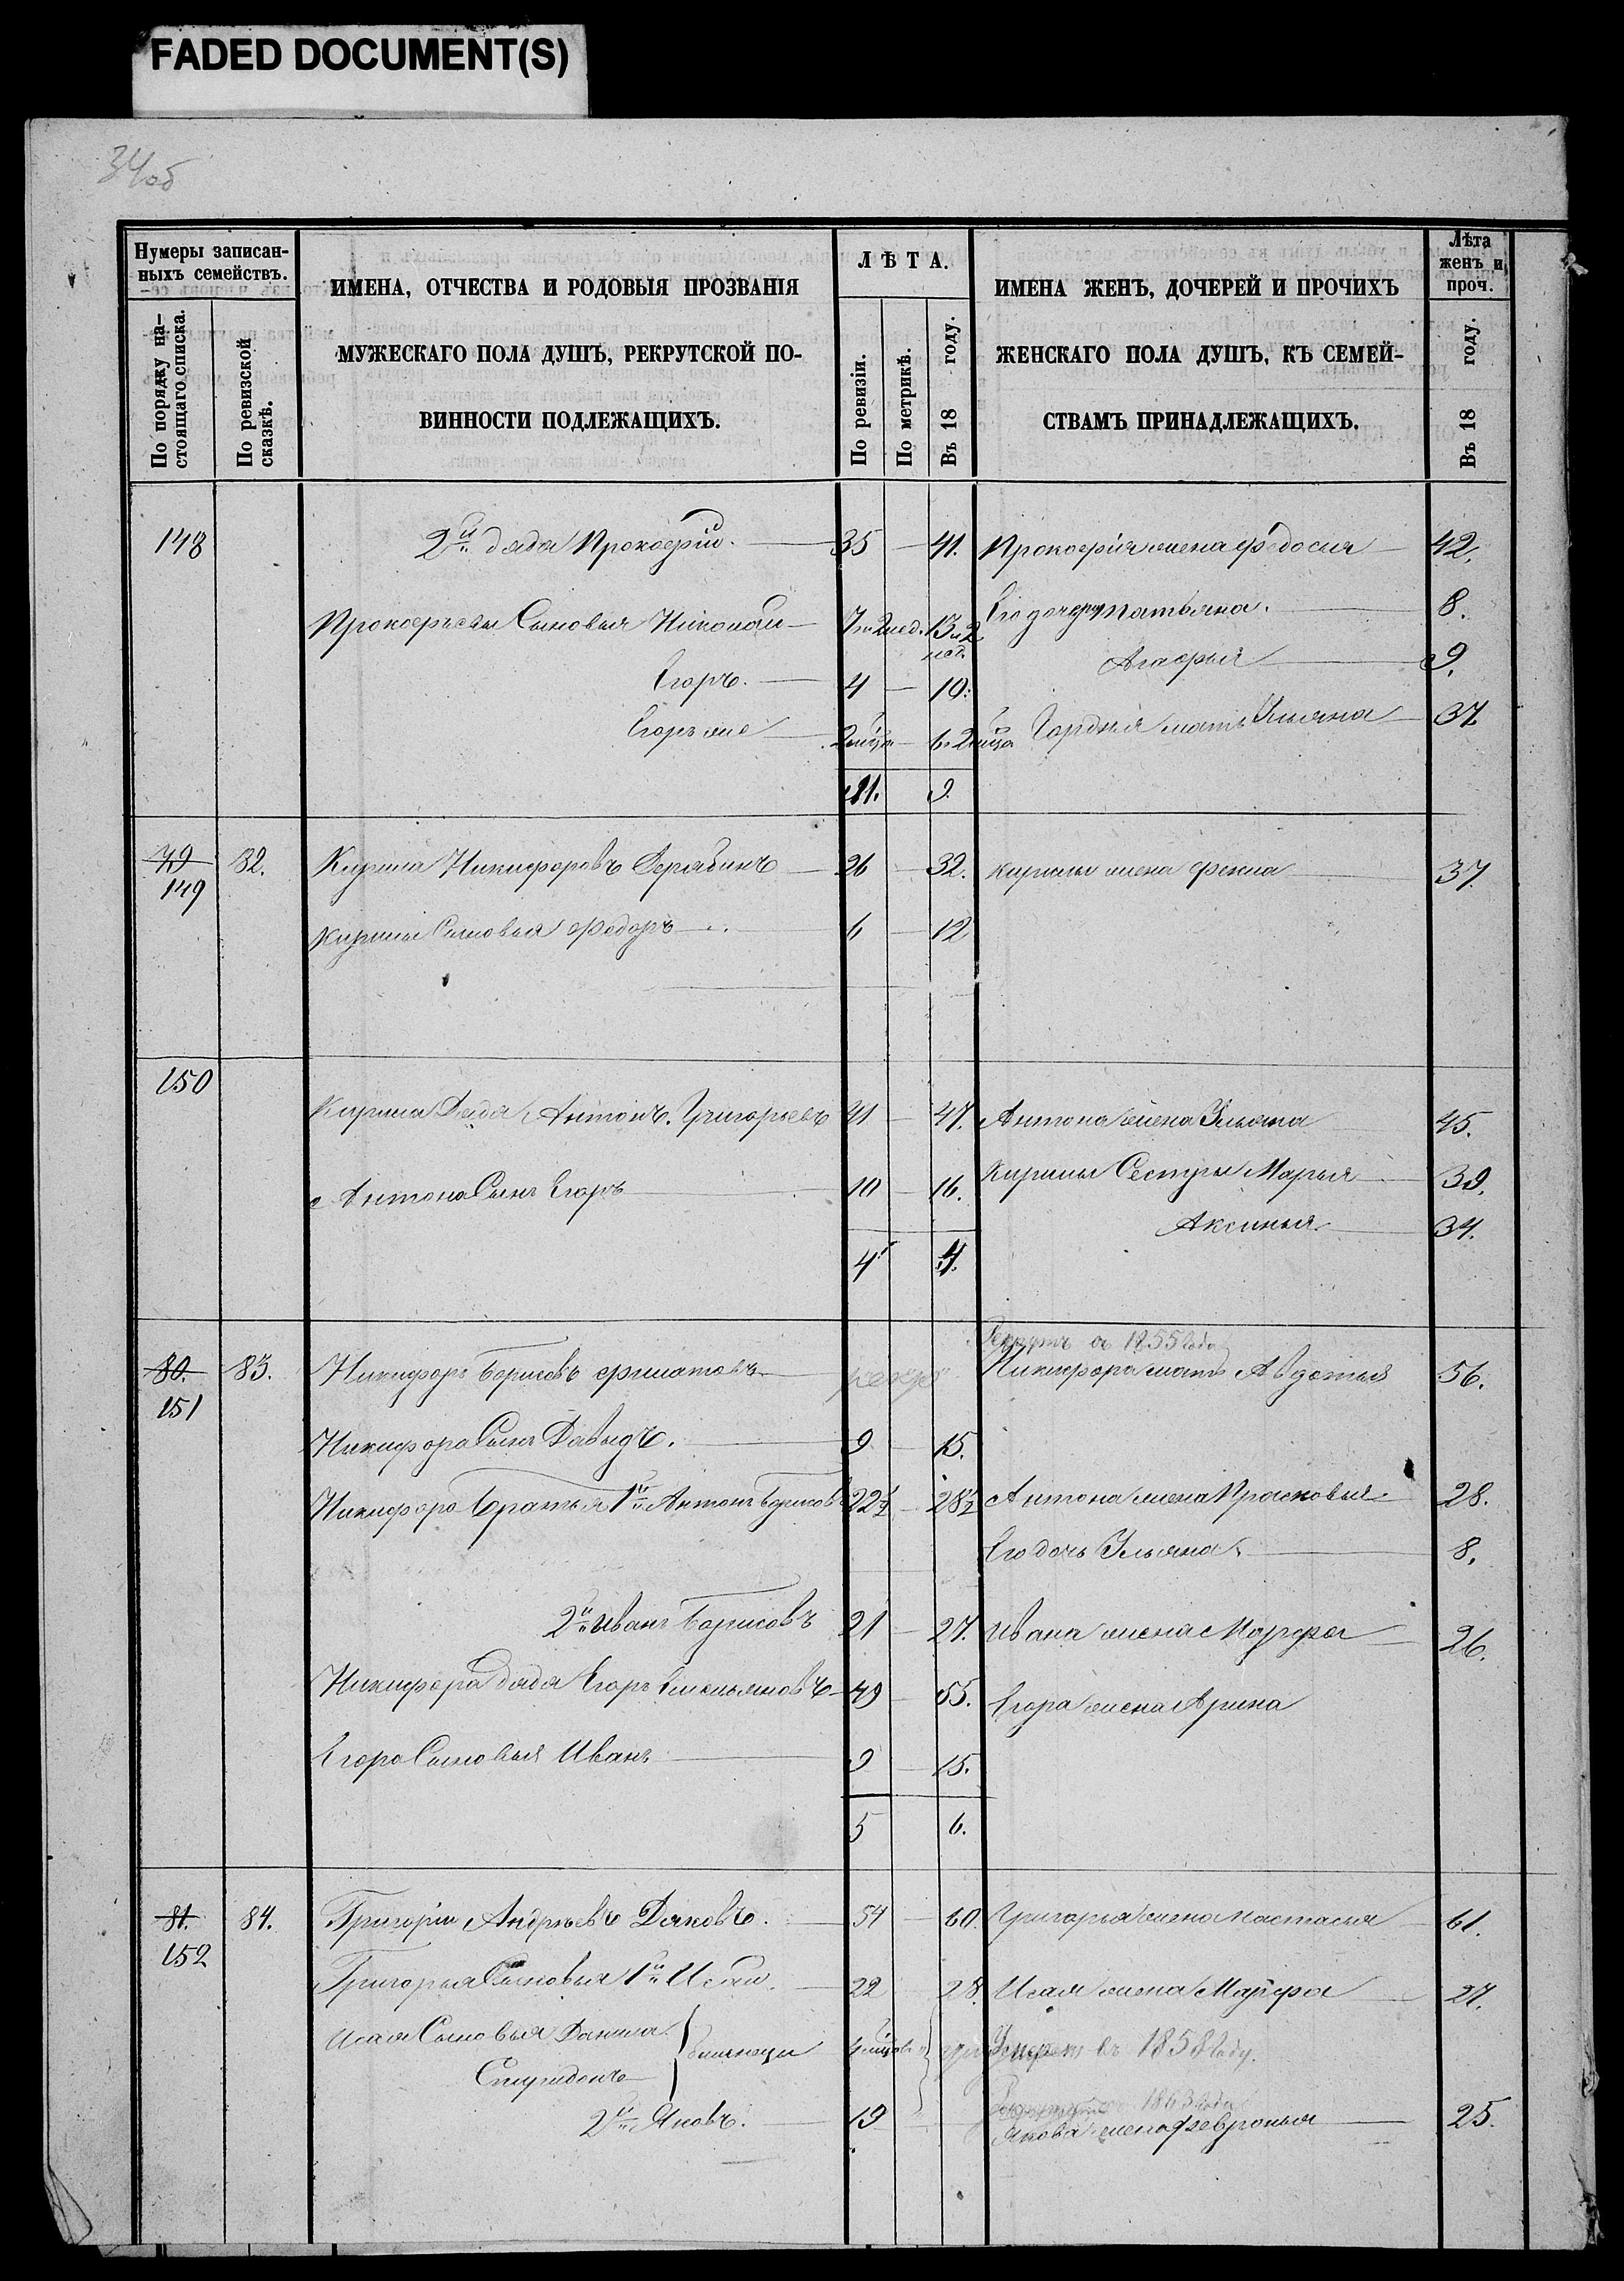 FADED DOCUMENT(S)
34об
Нумеры записан-
ныхъ семействъ.
По порядку на-
стоящаго списка.
По ревизской
сказкѣ.
ИМЕНА, ОТЧЕСТВА И РОДОВЫЯ ПРОЗВАНІЯ
МУЖЕСКАГО ПОЛА ДУШЪ, РЕКРУТСКОЙ ПО-
ВИННОСТИ ПОДЛЕЖАЩИХЪ.
ЛѢТА.
По ревизіи.
По метрикѣ.
Въ 18 году.
ИМЕНА ЖЕНЪ, ДОЧЕРЕЙ И ПРОЧИХЪ
ЖЕНСКАГО ПОЛА ДУШЪ, КЪ СЕМЕЙ-
СТВАМЪ ПРИНАДЛЕЖАЩИХЪ.
Лѣта
женъ и
проч.
Въ 18 году.
148 2й дядя Прокофій. 35 41. Прокофія жена Федосия 42.
Прокофьевы Сыновья Николай 7 и 2 нед. 13 и 2 нед. Его дочери Татьяна. 8.
Агафья 9.
Егоръ. 4 10.
Егоръ же 2 мѣсца 6 и 2 мѣсца Гордѣя мать Ульяна 37.
11. 9.
79 82. Кирила Никифоровъ Дерябинъ 26 32. Кирилы жена Фекла 37.
149
Кирилы Сыновья Федоръ 6 12
150
Кирила Дядя Антонъ Григорьевъ 41 47. Антона жена Ульяна 45.
Кирилы Сестры Марья 39.
Антона Сынъ Егоръ 10 16.
Аксинья 34.
4 4.
Рекрутъ съ 1855 года
80. 83. Никифоръ Борисовъ Филатовъ рекрут Никифора мать Авдотья 56.
151
Никифора Сынъ Давыдъ. 9 15.
Никифора Братья 1й Антонъ Борисовъ 22½ 28½ Антона жена Прасковья 28.
Его дочь Ульяна 8.
2й Иванъ Борисовъ 21 27. Ивана жена Марфа 26.
Никифора дядя Егоръ Емельяновъ 49 55. Егора жена Арина
Егора Сыновья Иванъ 9 15.
5 6.
81. 84. Григорій Андреевъ Дяковъ. 54 60. Григорья жена Настасья 61.
152
Григорья Сыновья 1й Исай 22 28. Исая жена Марфа 27.
Исая Сыновья Данила
Спиридонъ
близнецы в 1858 году.
1863 года
2й Яковъ. 19 Якова жена Февронья 25.